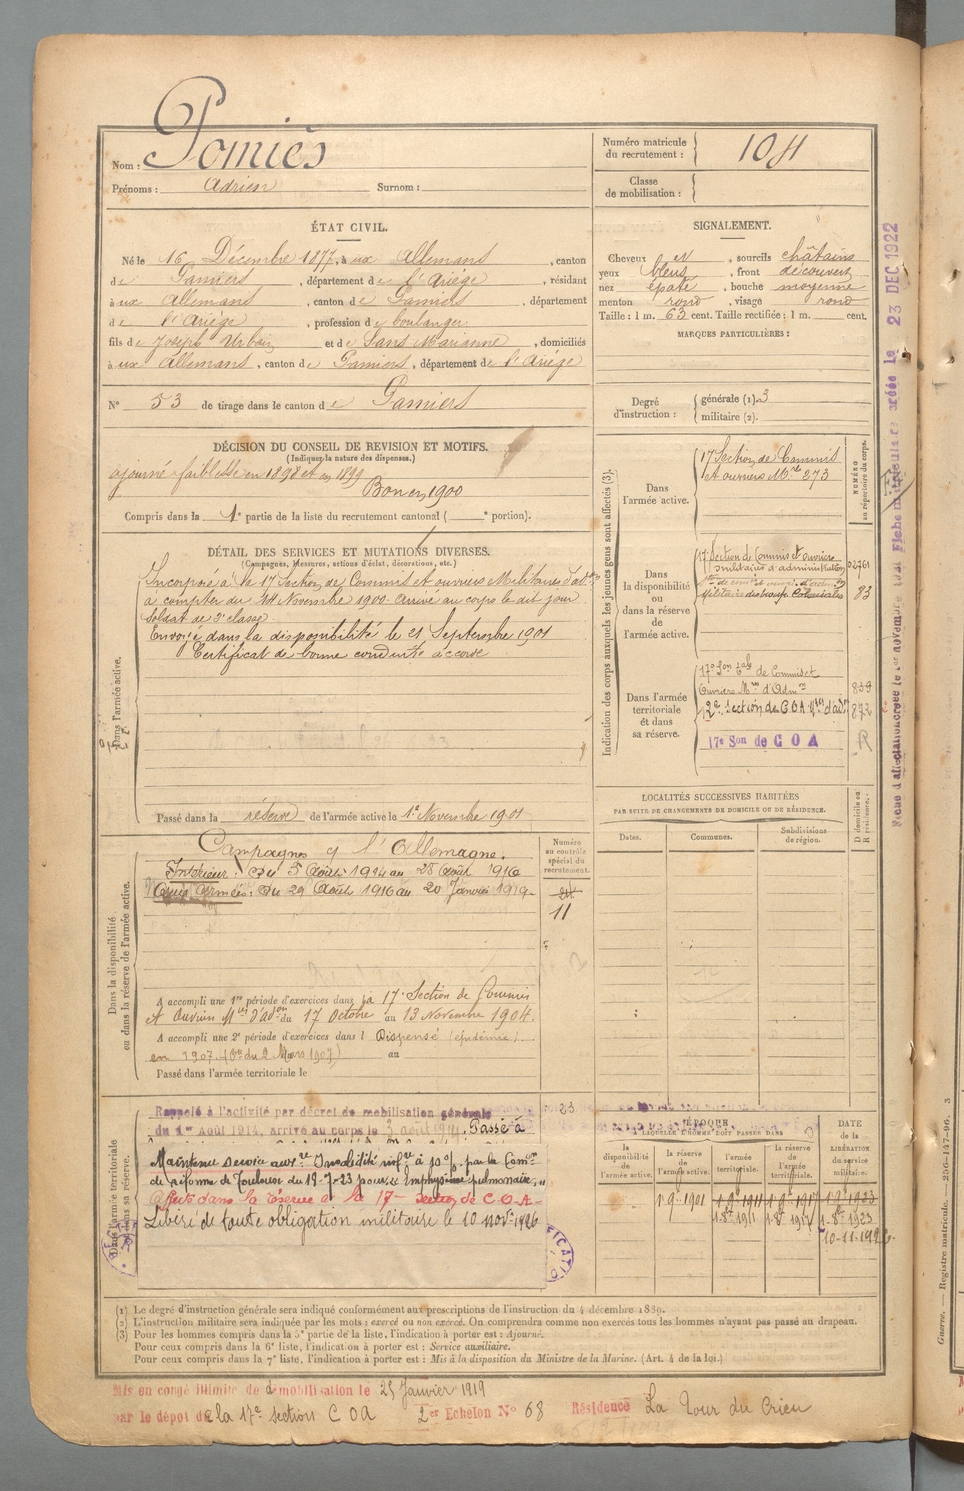 Nom : Pomiès
Prénoms : Adrien Surnom :
Numéro matricule du recrutement : 104
Classe de mobilisation :
ÉTAT CIVIL.
Né le 16 Décembre 1877, à ux Allemans, canton
de Pamiers, département de l'Ariège, résidant
à ux Allemans, canton de Pamiers, département
de l'Ariège, profession de boulanger
fils de Joseph Urbain et de Sans Marianne, domiciliés
à ux Allemans, canton de Pamiers, département de l'Ariége
N° 53 de tirage dans le canton de Pamiers
SIGNALEMENT.
Cheveux et, sourcils châtains
yeux bleus, front découvert
nez épaté, bouche moyenne
menton rond, visage rond
Taille : 1 m. 63 cent. Taille rectifiée : 1 m. cent.
MARQUES PARTICULIÈRES :
Degré d'instruction : générale (1). 3
militaire (2).
DÉCISION DU CONSEIL DE REVISION ET MOTIFS.
(Indiquer la nature des dispenses.)
ajourné faiblesse en 1898 et en 1899
Bon en 1900
Compris dans la 1e partie de la liste du recrutement cantonal ( e portion).
DÉTAIL DES SERVICES ET MUTATIONS DIVERSES.
(Campagnes, blessures, actions d'éclat, décorations, etc.)
Dans l'armée active.
Incorporé à la 17 Section de Commis et ouvriers Militaires
à compter du 14 Novembre 1900. Arrivé au corps le dit jour
Soldat de 2e classe
Envoyé dans la disponibilité le 21 Septembre 1901
Certificat de bonne conduite accordé
Passé dans la réserve de l'armée active le 1er Novembre 1901
Indication des corps auxquels les jeunes gens sont affectés (3).
NUMÉRO au répertoire du corps.
Dans l'armée active.
17 Section de Commis
et ouvriers Mres 273
Dans la disponibilité ou dans la réserve de l'armée active.
17e Section de Commis et ouvriers
militaires d'administration 02761
83
Dans l'armée territoriale et dans sa réserve.
17e Son de Commis et
Ouvriers Mres d'Admon 839
872
17e Son de C O A
LOCALITÉS SUCCESSIVES HABITÉES
PAR SUITE DE CHANGEMENTS DE DOMICILE OU DE RÉSIDENCE.
D domicile ou R résidence.
Dates. Communes. Subdivisions de région.
Dans la disponibilité ou dans la réserve de l'armée active.
Numéro au contrôle spécial du recrutement.
Campagnes c/ l'Allemagne.
Intérieur : Du 3 Août 1914 au 28 Août 1916
Aux Armées : Du 29 Août 1916 au 20 Janvier 1919
11
A accompli une 1re période d'exercices dans la 17e Section de Commis
et Ouvriers Mres d'Adon du 17 Octobre au 13 Novembre 1904.
A accompli une 2e période d'exercices dans l Dispensé (épidémie)
en 1907 du 2 Mars 1907) au
Passé dans l'armée territoriale le
Dans l'armée territoriale et dans sa réserve.
Rappelé à l'activité par décret de mobilisation générale 23
du 1er Août 1914, arrivé au corps le 3 août 1914. Passé à
Maintenu service auxre Invalidité infre à 10 % par la Comon
de réforme de Toulouse du 19-7-23 pour : Emphysème pulmonaire,
Affecté dans la réserve à la 17e Section de C. O. A.
Libéré de toute obligation militaire le 10 novre 1926
ÉPOQUE
À LAQUELLE L'HOMME DOIT PASSER DANS
la disponibilité de l'armée active. la réserve de l'armée active. l'armée territoriale. la réserve de l'armée territoriale. DATE de la LIBÉRATION du service militaire.
1-9-1901 1-9-1911 1-9-1917 1-9-1923
1-8-1911 1-8-1917 1-8-1923
10-11-1926
(1) Le degré d'instruction générale sera indiqué conformément aux prescriptions de l'instruction du 4 décembre 1889.
(2) L'instruction militaire sera indiquée par les mots : exercé ou non exercé. On comprendra comme non exercés tous les hommes n'ayant pas passé au drapeau.
(3) Pour les hommes compris dans la 5e partie de la liste, l'indication à porter est : Ajourné.
Pour ceux compris dans la 6e liste, l'indication à porter est : Service auxiliaire.
Pour ceux compris dans la 7e liste, l'indication à porter est : Mis à la disposition du Ministre de la Marine. (Art. 4 de la loi.)
Mis en congé illimité de démobilisation le 25 Janvier 1919
par le dépôt de la 17e section C O A 2er Echelon N° 68 Résidence La Tour du Crieu
23 DEC 1922
Guerre. — Registre matricule. — 256-147-96. 3